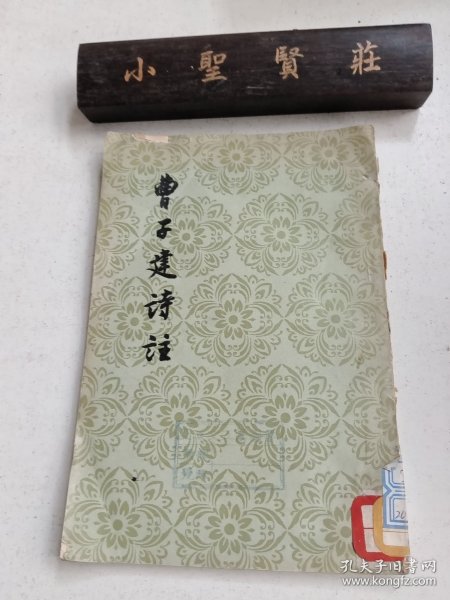 小聖賢莊
曹子建诗註
孔夫子旧书网
www.kongfz.com